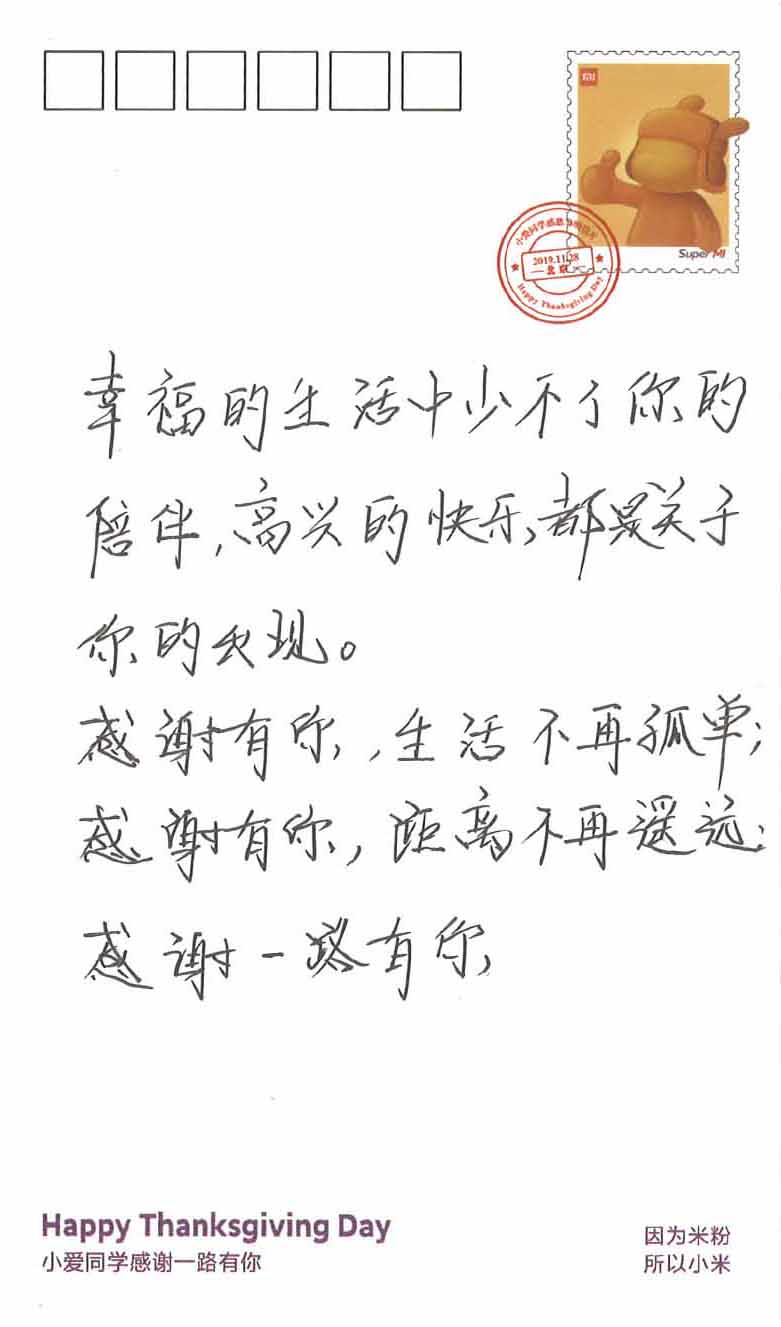 MI
Super MI
2019.11.28
北京
Happy Thanksgiving Day
幸福的生活中少不了你的
陪伴,高兴的快乐,都是关于
你的出现。
感谢有你,生活不再孤单;
感谢有你,距离不再遥远;
感谢一路有你
Happy Thanksgiving Day
小爱同学感谢一路有你
因为米粉
所以小米